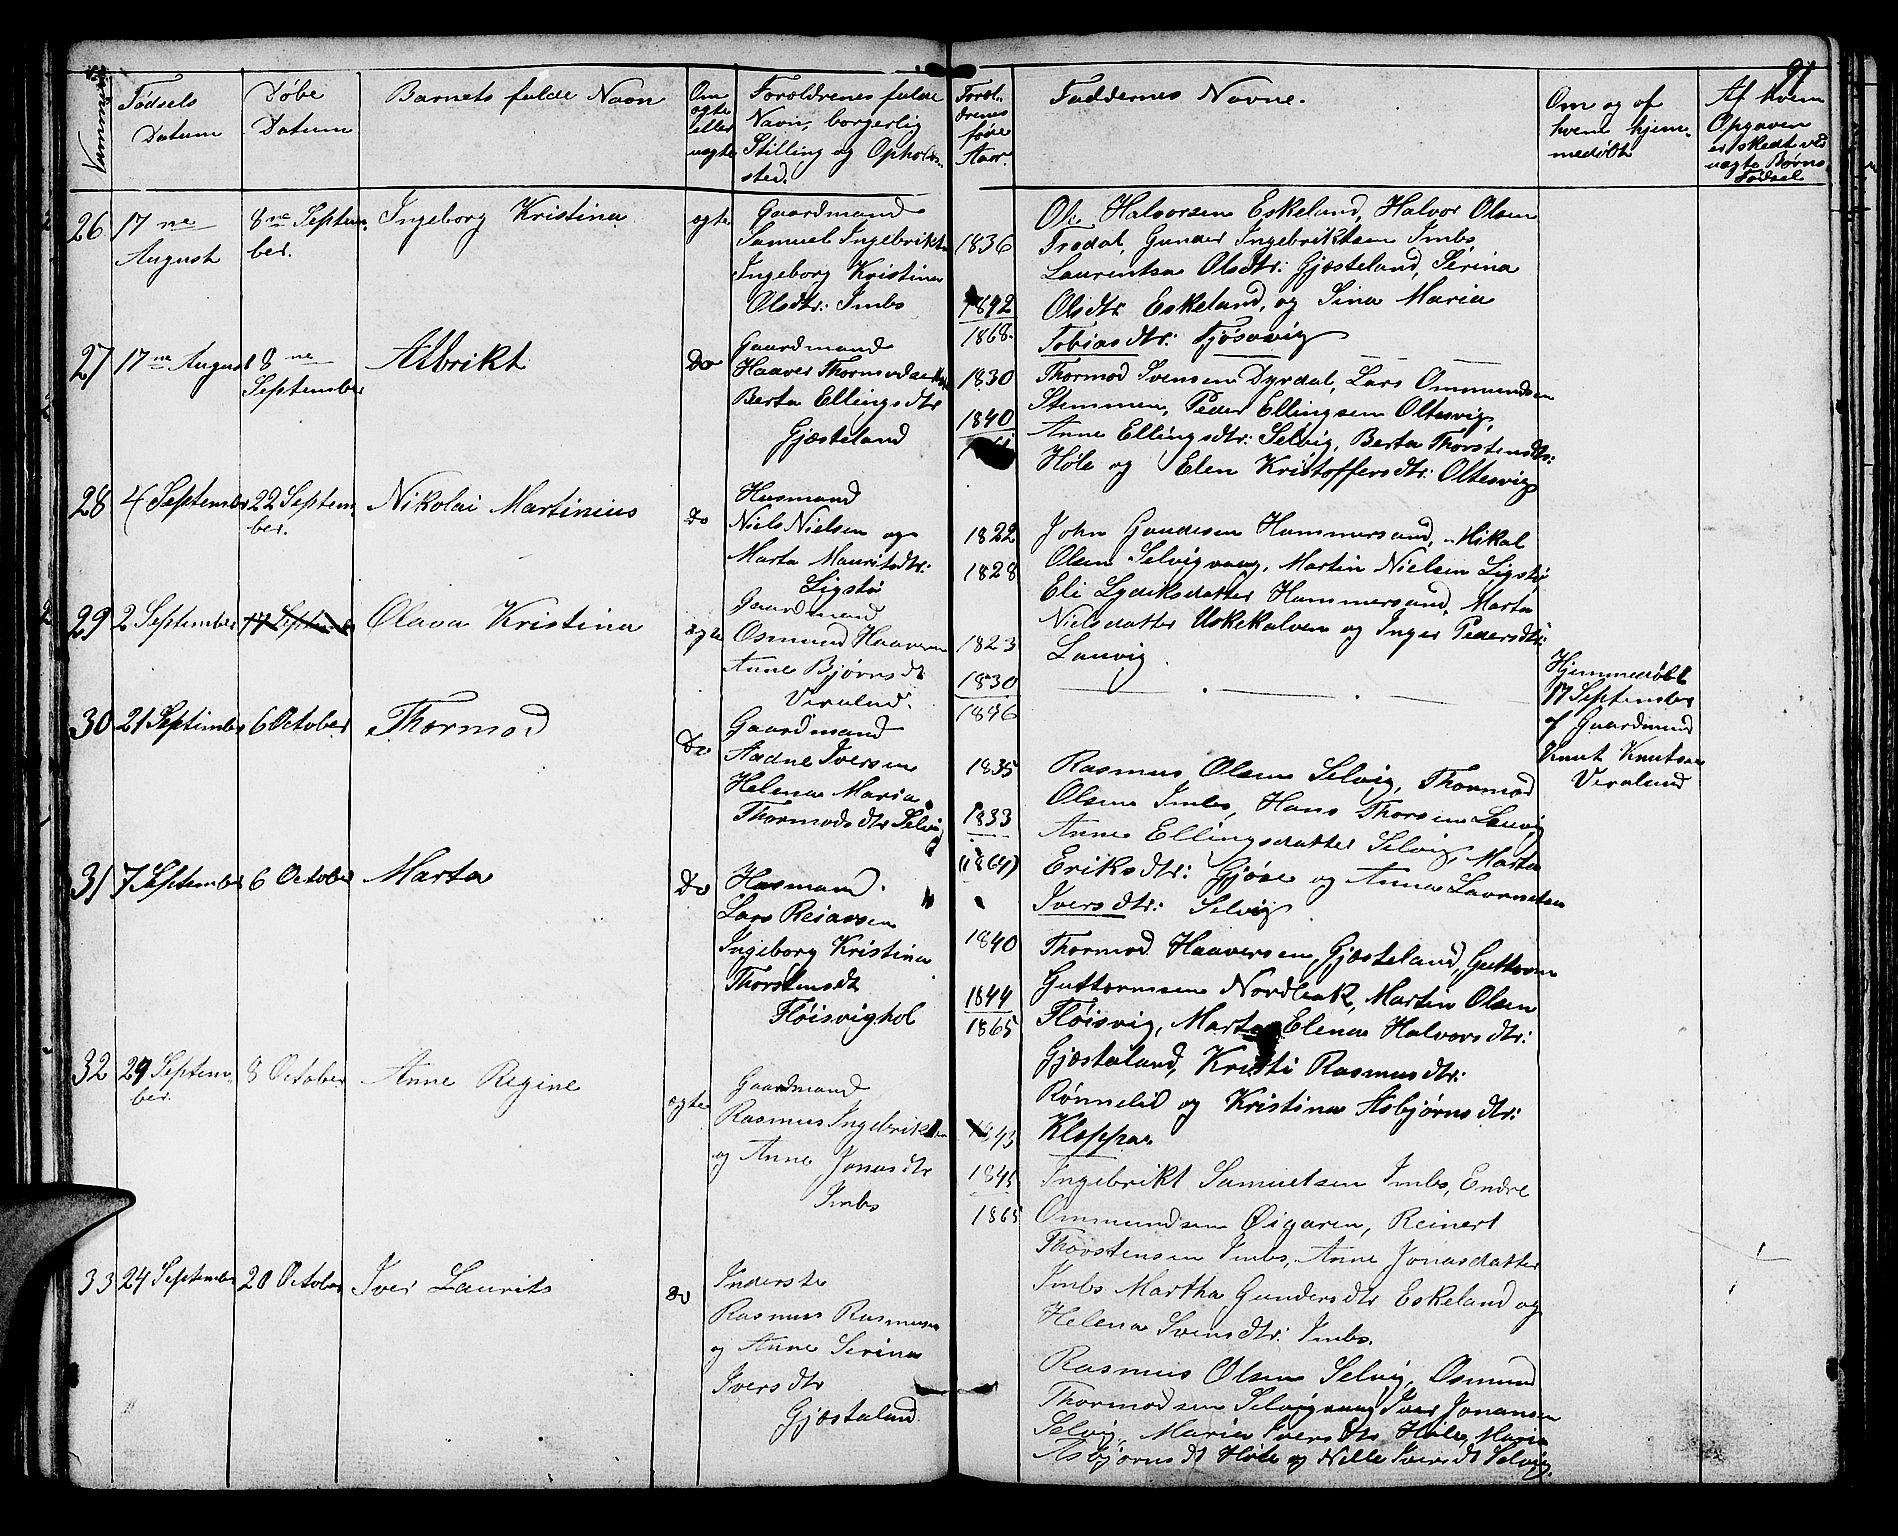 91
Nummer
Fødsels
Datum
Døbe
Datum
Barnets fulde Navn
Om
ægte
eller
uægte
Forældrenes fulde
Navn, borgerlig
Stilling og Opholds-
sted.
Foræl-
drenes
føde
Aar.
Faddernes Navne.
Om og af
hvem hjem-
medøbt
Af hvem
Opgaven
er skedt ved
uægte Børns
Fødsel
26
17 ne
August
8 ne Septem-
ber.
Ingeborg Kristina
ægte
Gaardmand
Samuel Ingebriktsen
Ingeborg Kristina
Olsdtr: Imbs
1836
1842
1868.
Ole Halvorsen Eskeland, Halvor Olsen
Frodal, Gunder Ingebriktsen Imbs,
Laurentsa Olsdtr: Gjæsteland, Serina
Olsdtr Eskeland, og Sina Maria
Tobiasdtr: Fjøsavig
27
17 ne August
8 ne
September
Albrikt
Do
Gaardmand
Haaver Thormodsen
Berta Ellingsdtr
Gjæsteland
1830
1840
Thormod Svensen Dyrdal, Lars Ommundsen
Stemmen, Peder Ellingsen Oltesvig,
Anne Ellingsdtr: Selvig, Berta Thorstensdtr:
Høle og Elen Kristoffersdtr: Oltesvig
28
4 September
22 Septem-
ber.
Nikolai Martinius
Do
Husmand
Niels Nielsen og
Marta Mauritsdtr:
Ligstø
1822
1828
John Gaudesen Hammersand, Mikal
Olsen Selvigvaag, Martin Nielsen Ligstø,
Eli Lydiksdatter Hammersand, Marta
Nielsdatter Uskekalven og Inger Pedersdtr:
Lauvig.
29
2 September
17 September
Olava Kristina
ægte
Gaardmand
Osmund Haaversen
Anne Bjørnsdt
Veraland.
1823
1830
1846
Hjemmedøbt
17 September
af Gaardmand
Knut Knutsen
Veraland
30
21 September
6 October
Thormod
Do
Gaardmand
Aadne Iversen
Helena Maria
Thormodsdtr Selvig
1835
1833
(1864)
Rasmus Olsen Selvig, Thormod
Olsen Imbs, Hans Thorsen Lauvig
Anne Ellingsdatter Selvig, Marta
Eriksdtr: Gjøse og Anna Lavrentsa
Iversdtr: Selvig
31
7 September
6 October
Marta
Do
Husmand.
Lars Reiarsen
Ingeborg Kristina
Thorstensdt
Fløisvighol
1840
1844
1865
Thormod Haaversen, Gjæsteland, Guttorm
Guttormsen Nordbak, Martin Olsen
Fløisvig, Marta Elena Halvorsdtr:
Gjæstaland, Kristi Rasmusdtr:
Rønnelid og Kristina Asbjørnsdtr:
Kleppa
32
29 Septem-
ber.
8 October
Anne Regine
ægte
Gaardmand
Rasmus Ingebriktsen
og Anne Jonasdtr
Imbs
1843
1845
1865
Ingebrikt Samuelsen Imbs, Endre
Ommundsen Øigaren, Reinert
Thorstensen Imbs, Anne Jonasdatter
Imbs Martha Gundersdtr Eskeland og
Helena Svensdtr: Imbs.
33
24 September
20 October
Iver Laurits
Do
Inderste
Rasmus Rasmusen
og Anne Serina
Iversdtr
Gjæstaland.
Rasmus Olsen Selvig, Osmund
Thormodsen Selvigvaag Iver Jonansen
Selvig, Maria Iversdtr Høle, Maria
Asbjørnsdt Høle og Nille Iversdt Selvig.